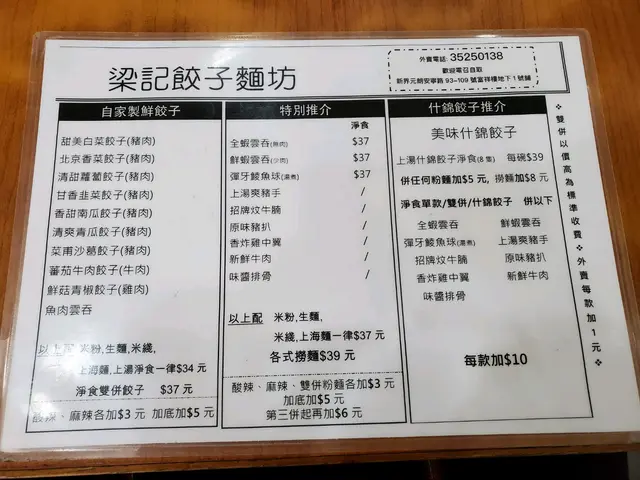 梁記餃子麵坊
外賣電話: 35250138
歡迎電召自取
新界元朗安寧路 93-109 號富祥樓地下 1 號舖
自家製鮮餃子
甜美白菜餃子(豬肉)
北京香菜餃子(豬肉)
清甜蘿蔔餃子(豬肉)
甘香韭菜餃子(豬肉)
香甜南瓜餃子(豬肉)
清爽青瓜餃子(豬肉)
菜甫沙葛餃子(豬肉)
蕃茄牛肉餃子(牛肉)
鮮菇青椒餃子(雞肉)
魚肉雲吞
以上配 米粉,生麵,米綫,
上海麵,上湯淨食一律$34 元
淨食雙併餃子 $37 元
酸辣、麻辣各加$3 元 加底加$5 元
特別推介
淨食
全蝦雲吞(無肉) $37
鮮蝦雲吞(少肉) $37
彈牙鯪魚球(湯煮) $37
上湯爽豬手 /
招牌炆牛腩 /
原味豬扒 /
香炸雞中翼 /
新鮮牛肉 /
味醬排骨 /
以上配 米粉,生麵,
米綫,上海麵一律$37 元
各式撈麵$39 元
酸辣、麻辣、雙併粉麵各加$3 元
加底加$5 元
第三併起再加$6 元
什錦餃子推介
美味什錦餃子
上湯什錦餃子淨食(8 隻) 每碗$39
併任何粉麵加$5 元, 撈麵加$8 元
淨食單款/雙併/什錦餃子 併以下
全蝦雲吞 鮮蝦雲吞
彈牙鯪魚球(湯煮) 上湯爽豬手
招牌炆牛腩 原味豬扒
香炸雞中翼 新鮮牛肉
味醬排骨
每款加$10
❖雙併以價高為標準收費❖外賣每款加1元❖